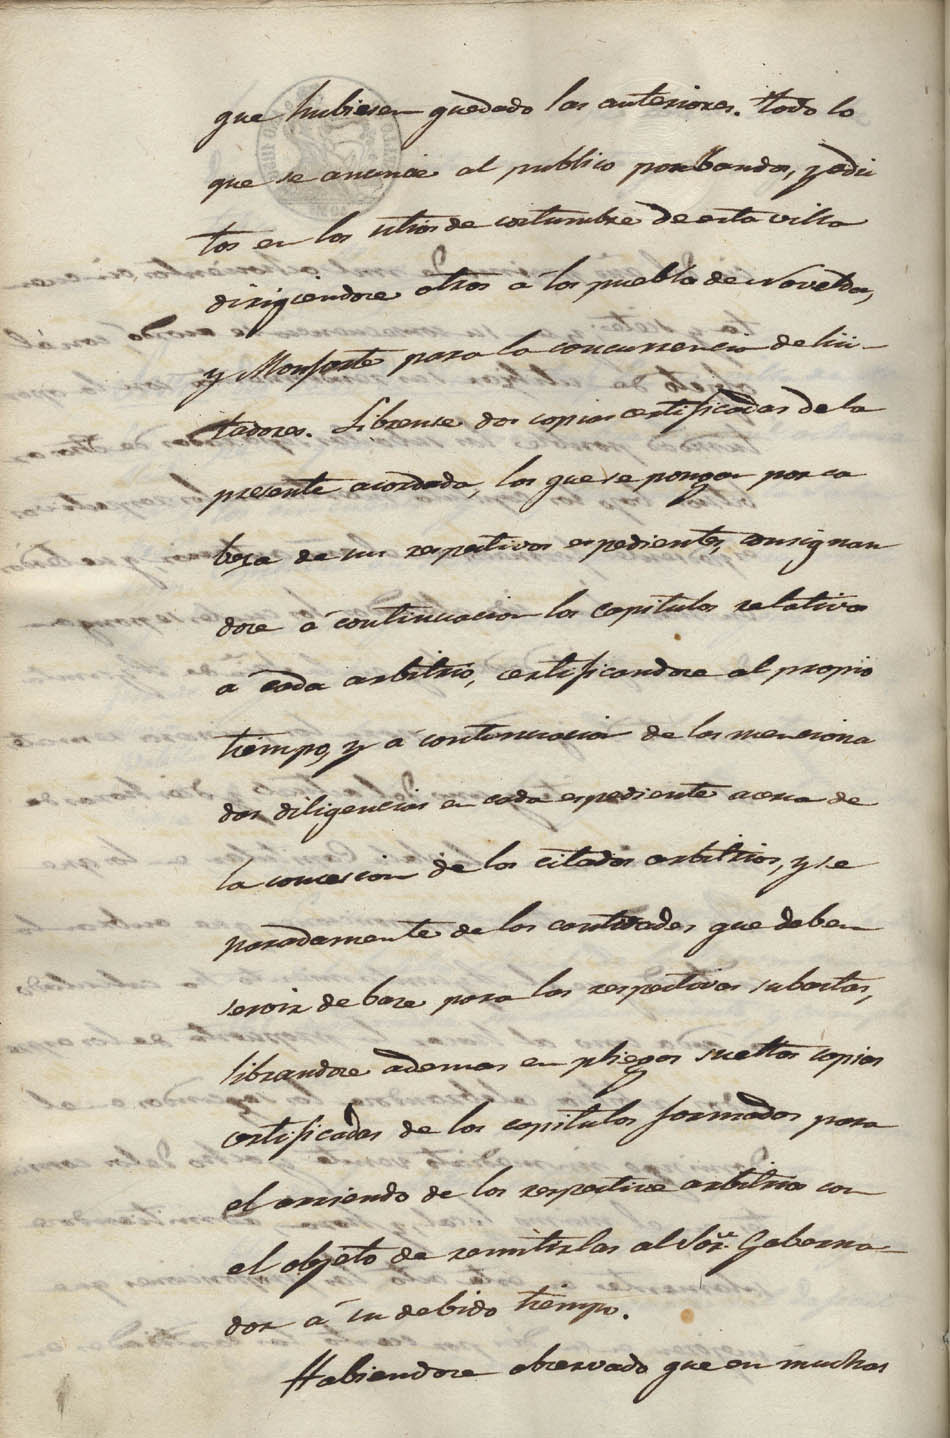 que hubiesen quedado las anteriores. Todo lo
que se anuncie al publico por bandos, y edic
tos en los sitios de costumbre de esta villa
dirigiendose otros á los pueblos de Novelda,
y Monforte para la concurrencia de lici-
tadores. Librense dos copias certificadas de la
presente acordada, las que se pongan por ca
beza de sus respectivos espedientes, consignan
dose á continuacion los capitulos relativos
a cada arbitrio, certificandose al propio
tiempo, y á continuacion de las menciona
das diligencias en cada espediente acerca de
la concesion de los citados arbitrios, y se
paradamente de las cantidades que deben
servir de base para las respectivas subastas,
librandose ademas en pliegos sueltos copias
certificadas de los capitulos formados para
el arriendo de los respective arbitrios con
el objeto de remitirlas al Sor. Goberna-
dor á su debido tiempo.
Habiendose observado que en muchas